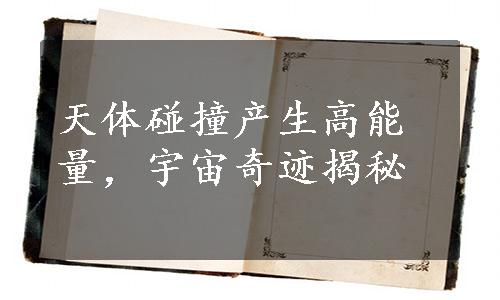 天体碰撞产生高能
量，宇宙奇迹揭秘